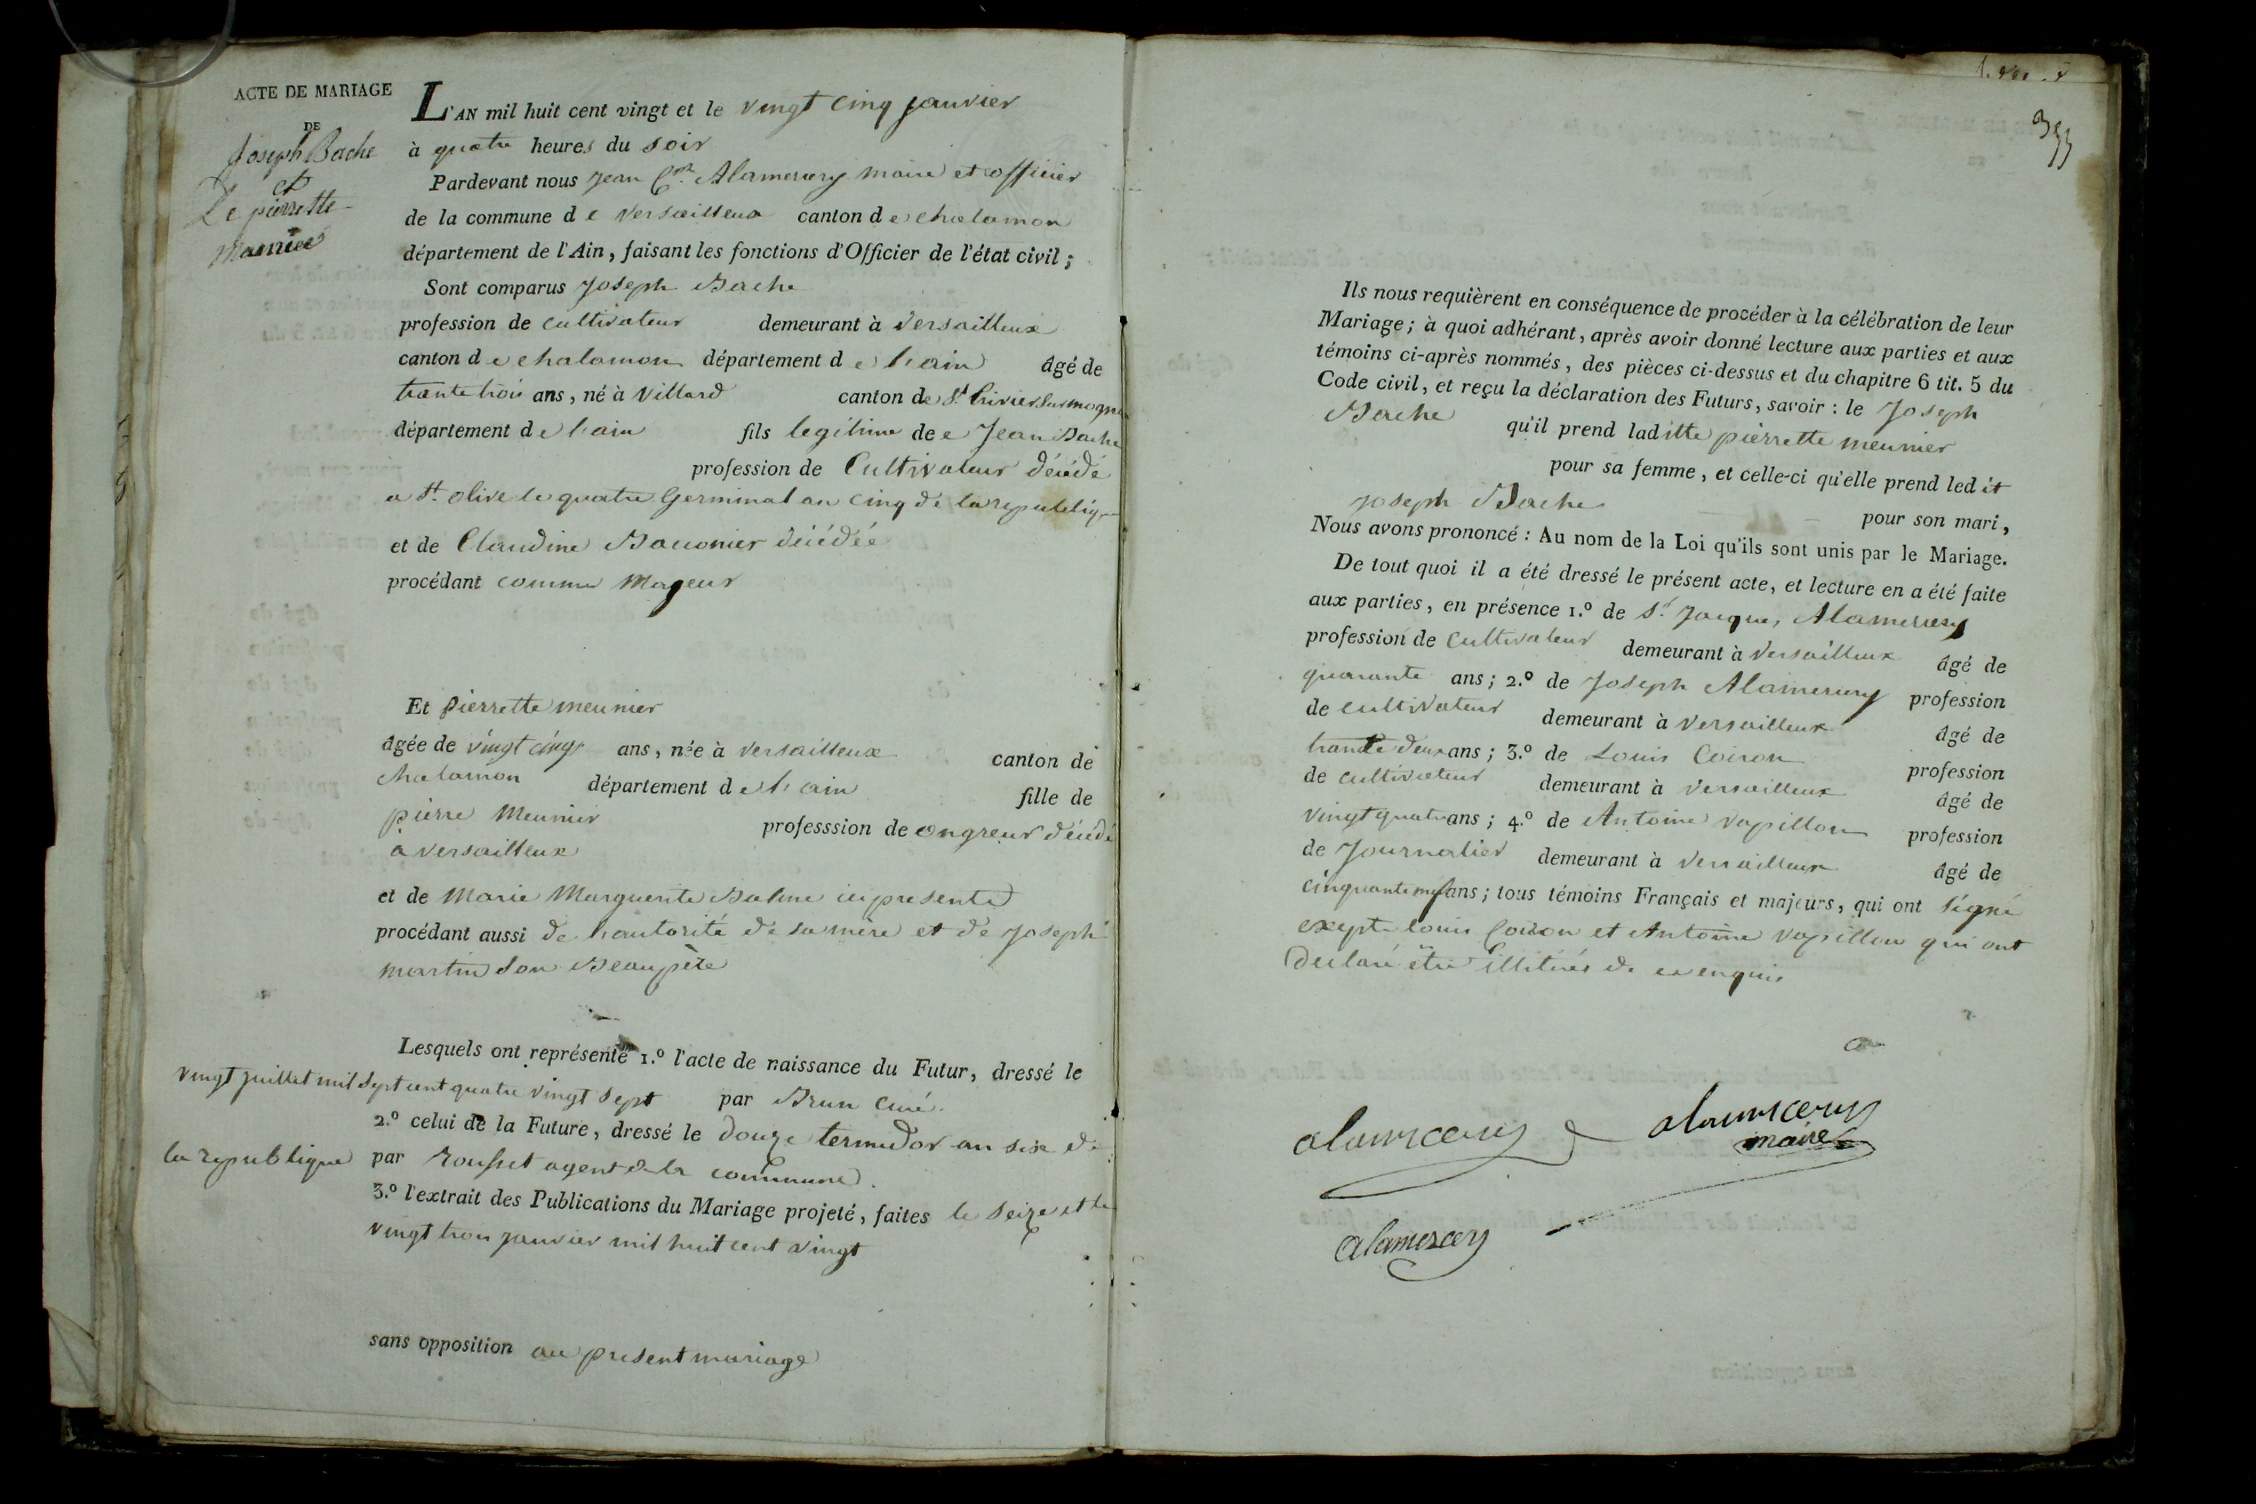 ACTE DE MARIAGE
DE
Joseph Bache
et
De pierrette
Munier
L'AN mil huit cent vingt et le vingt cinq janvier
à quatre heures du soir
Pardevant nous jean Alamercery maire et officier
de la commune de versailleux canton de chalamon
département de l'Ain, faisant les fonctions d'Officier de l'état civil;
Sont comparus Joseph Bache
profession de cultivateur demeurant à versailleux
canton de chalamon département de l'ain âgé de
trante trois ans, né à villard canton de St. trivier sur mogna
département de l'ain fils legitime de e Jean Bache
profession de Cultivateur décédé
a St. olive le quatre Germinal an cinq de la republique
et de Claudine Baconier décédée
procédant comme Majeur
Et pierrette meunier
âgée de vingt cinq ans, née à versailleux canton de
chalamon département de l'ain fille de
pierre Meunier professsion de ongreur décédé
à versailleux
et de Marie Marguerite Balme ici presente
procédant aussi de l'autorité de sa mère et de Joseph
martin son Beaupère
Lesquels ont représenté 1.º l'acte de naissance du Futur, dressé le
vingt juillet mil sept cent quatre vingt sept par Brun curé.
2.º celui de la Future, dressé le douze termidor an six de
la republique par rousset agent de la commune.
3.º l'extrait des Publications du Mariage projeté, faites le seize et le
vingt trois janvier mil huit cent vingt
sans opposition au present mariage
355
Ils nous requièrent en conséquence de procéder à la célébration de leur
Mariage; à quoi adhérant, après avoir donné lecture aux parties et aux
témoins ci-après nommés, des pièces ci-dessus et du chapitre 6 tit. 5 du
Code civil, et reçu la déclaration des Futurs, savoir: le Joseph
Bache qu'il prend laditte pierrette meunier
pour sa femme, et celle-ci qu'elle prend ledit
joseph Bache pour son mari,
Nous avons prononcé: Au nom de la Loi qu'ils sont unis par le Mariage.
De tout quoi il a été dressé le présent acte, et lecture en a été faite
aux parties, en présence 1.º de Sr. Jacques Alamercery
profession de cultivateur demeurant à versailleux âgé de
quarante ans; 2.º de Joseph Alamercery profession
de cultivateur demeurant à versailleux âgé de
trante deux ans; 3.º de Louis Coiron profession
de cultivateur demeurant à versailleux âgé de
vingt quatre ans; 4.º de Antoine vapillon profession
de Journalier demeurant à versailleux âgé de
cinquante neuf ans; tous témoins Français et majeurs, qui ont signé
exepte louis Coiron et Antoine vapillon qui ont
declaré être illitérés de ce enquis
alamercery alamercery
maire
alamercery